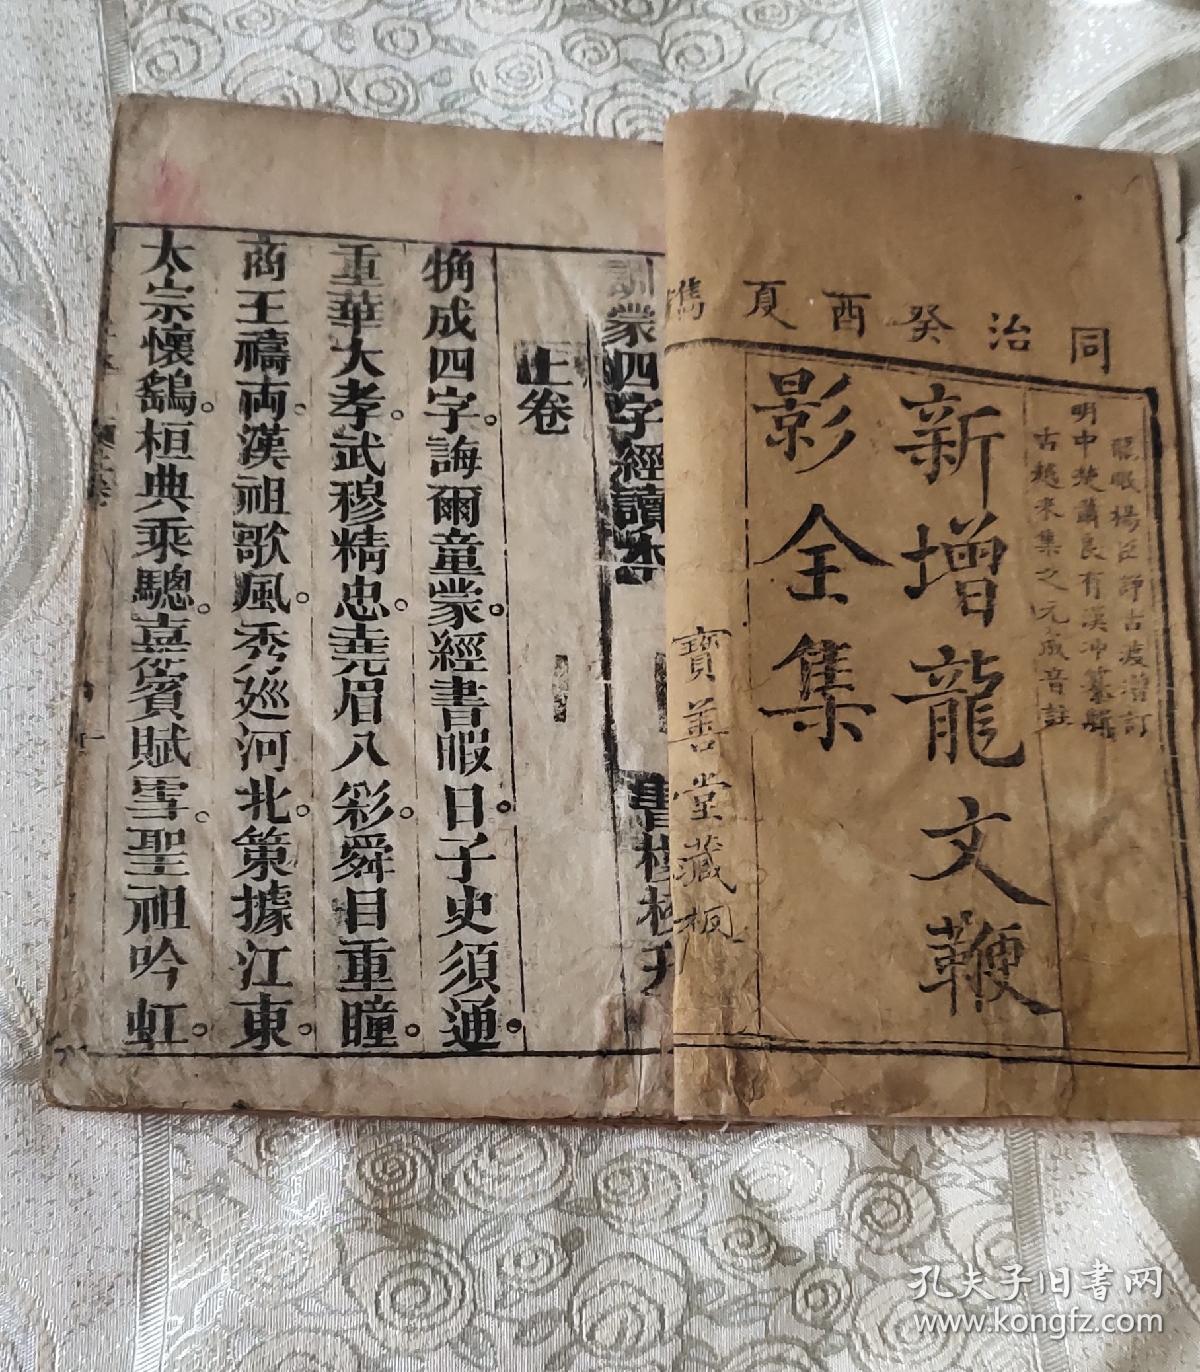 同治癸酉夏鐫
龍眼楊臣諍古度增訂
明中楚蕭良有漢冲纂輯
古越來集之元成音註
新增龍文鞭
影全集
寶善堂藏板
訓蒙四字經讀本
上卷
觕成四字。誨爾童蒙。經書暇日。子史須通。
重華大孝。武穆精忠。堯眉八彩。舜目重瞳。
商王禱雨。漢祖歌風。秀廵河北。策據江東。
太宗懷鷂。桓典乘驄。嘉賓賦雪。聖祖吟虹。
孔夫子旧书网
www.kongfz.com